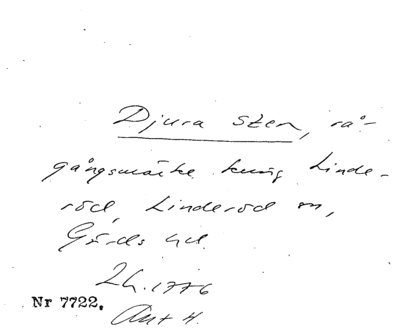 Djura sten, rå-
gångsmärke kring Linde-
röd, Linderöd sn,
Gärds hd.
Lh. 1776
Nr 7722.
Ant H.